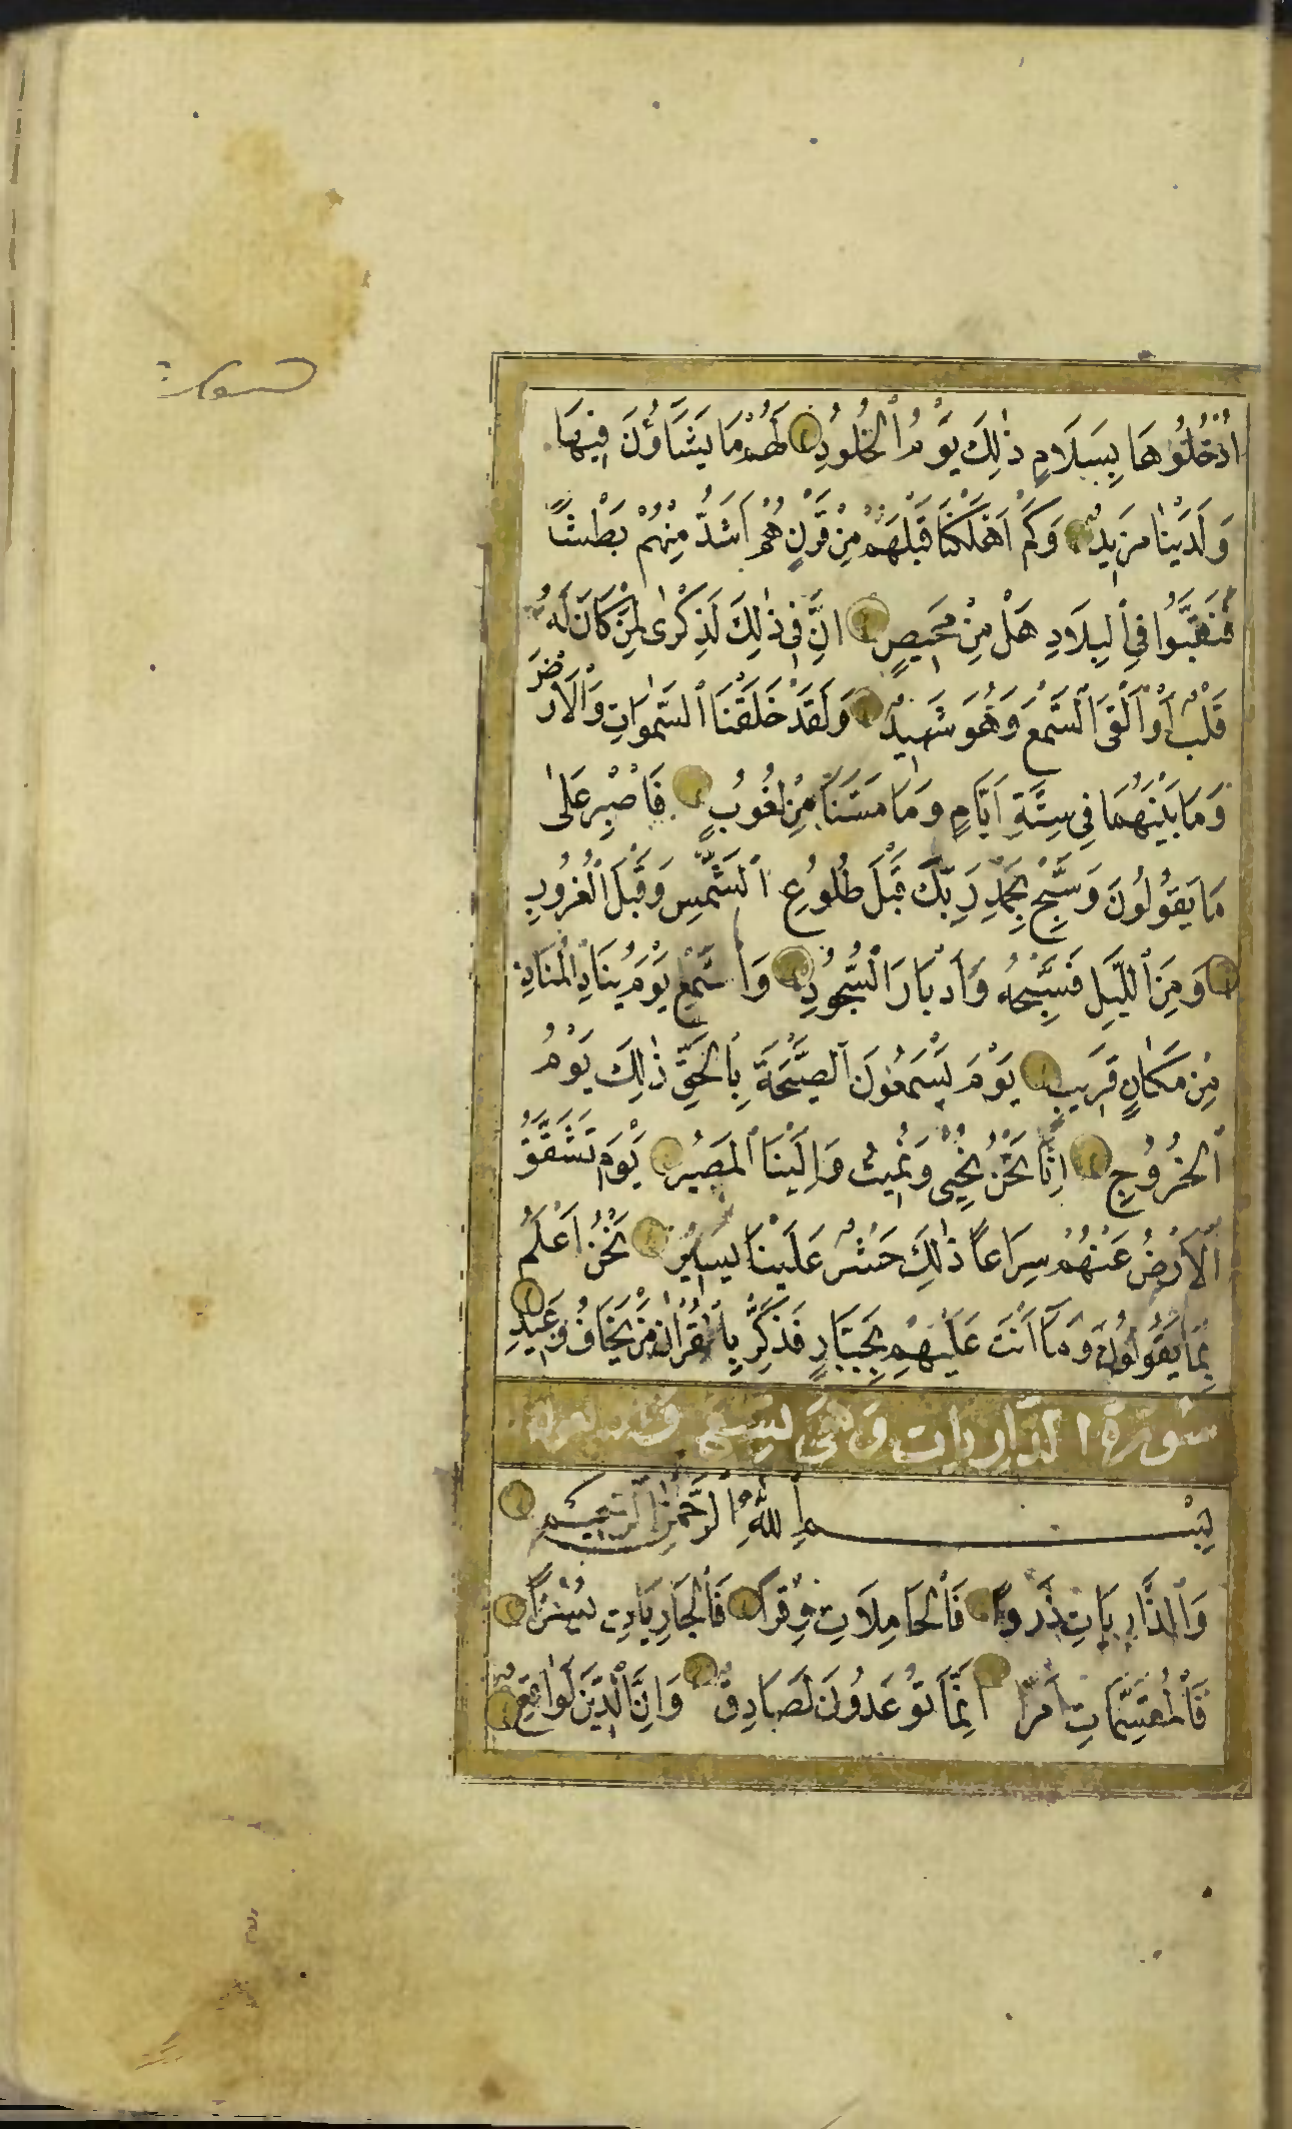 اُدْخُلُوهَا بِسَلَامٍ ذٰلِكَ يَوْمُ ٱلْخُلُودِ لَهُمْ مَا يَشَاؤُنَ فِيهَا
وَلَدَيْنَا مَزِيدٌ وَكَمْ اَهْلَكْنَا قَبْلَهُمْ مِنْ قَرْنٍ هُمْ اَشَدُّ مِنْهُمْ بَطْشًا
فَنَقَّبُوا فِي ٱلْبِلَادِ هَلْ مِنْ مَحِيصٍ اِنَّ فِي ذٰلِكَ لَذِكْرٰى لِمَنْ كَانَ لَهُ
قَلْبٌ اَوْ اَلْقَى ٱلسَّمْعَ وَهُوَ شَهِيدٌ وَلَقَدْ خَلَقْنَا ٱلسَّمٰوَاتِ وَٱلْاَرْضَ
وَمَا بَيْنَهُمَا فِي سِتَّةِ اَيَّامٍ وَمَا مَسَّنَا مِنْ لُغُوبٍ فَاصْبِرْ عَلٰى
مَا يَقُولُونَ وَسَبِّحْ بِحَمْدِ رَبِّكَ قَبْلَ طُلُوعِ ٱلشَّمْسِ وَقَبْلَ ٱلْغُرُوبِ
وَمِنَ ٱللَّيْلِ فَسَبِّحْهُ وَاَدْبَارَ ٱلسُّجُودِ وَاسْتَمِعْ يَوْمَ يُنَادِ ٱلْمُنَادِ
مِنْ مَكَانٍ قَرِيبٍ يَوْمَ يَسْمَعُونَ ٱلصَّيْحَةَ بِٱلْحَقِّ ذٰلِكَ يَوْمُ
ٱلْخُرُوجِ اِنَّا نَحْنُ نُحْيِي وَنُمِيتُ وَاِلَيْنَا ٱلْمَصِيرُ يَوْمَ تَشَقَّقُ
ٱلْاَرْضُ عَنْهُمْ سِرَاعًا ذٰلِكَ حَشْرٌ عَلَيْنَا يَسِيرٌ نَحْنُ اَعْلَمُ
بِمَا يَقُولُونَ وَمَا اَنْتَ عَلَيْهِمْ بِجَبَّارٍ فَذَكِّرْ بِٱلْقُرْاٰنِ مَنْ يَخَافُ وَعِيدِ
سُورَةُ ٱلذَّارِيَاتِ وَهِيَ
بِسْمِ ٱللّٰهِ ٱلرَّحْمٰنِ ٱلرَّحِيمِ
وَٱلذَّارِيَاتِ ذَرْوًا فَٱلْحَامِلَاتِ وِقْرًا فَٱلْجَارِيَاتِ يُسْرًا
فَٱلْمُقَسِّمَاتِ اَمْرًا اِنَّمَا تُوعَدُونَ لَصَادِقٌ وَاِنَّ ٱلدِّينَ لَوَاقِعٌ